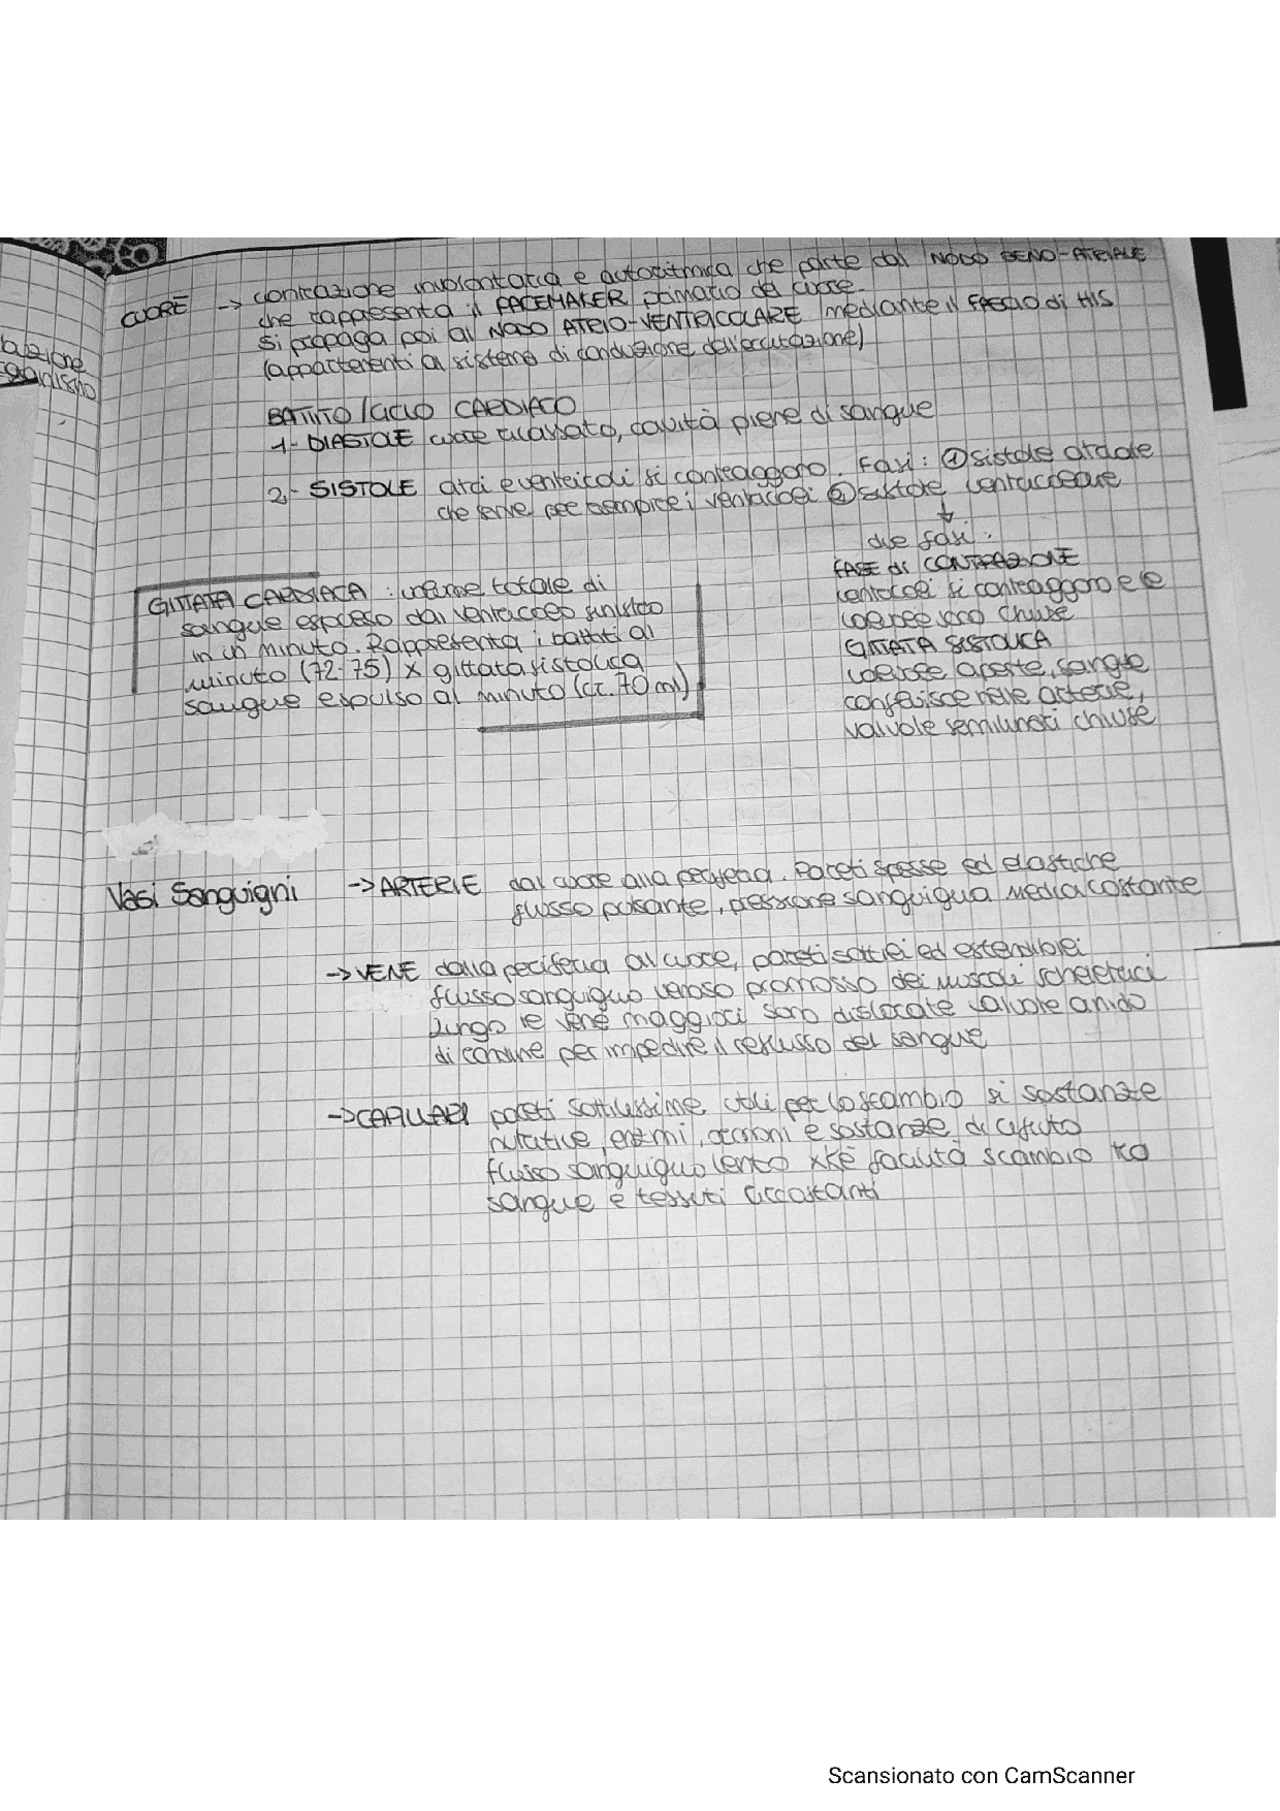 CUORE -> contrazione involontaria e autoritmica che parte dal NODO SENO-ATRIALE
che rappresenta il PACEMAKER primario del cuore.
Si propaga poi al NODO ATRIO-VENTRICOLARE mediante il FASCIO di HIS
(appartenenti al sistema di conduzione dell'eccitazione)
BATTITO/CICLO CARDIACO
1- DIASTOLE cuore rilassato, cavità piene di sangue
2- SISTOLE atri e ventricoli si contraggono. Fasi: ① sistole atriale
che serve per riempire i ventricoli ② sistole ventricolare
↓
due fasi:
FASE di CONTRAZIONE
ventricoli si contraggono e le
valvole sono chiuse
GITTATA SISTOLICA
valvole aperte, sangue
confluisce nelle arterie,
valvole semilunari chiuse
GITTATA CARDIACA: volume totale di
sangue espulso dal ventricolo sinistro
in in minuto. Rappresenta i battiti al
minuto (72-75) x gittata sistolica
sangue espulso al minuto (cr. 70 ml)
Vasi Sanguigni -> ARTERIE dal cuore alla periferia. Pareti spesse ed elastiche
flusso pulsante, pressione sanguigna media costante
-> VENE dalla periferia al cuore, pareti sottili ed estensibili
flusso sanguigno venoso promosso dei muscoli scheletrici
lungo le vene maggiori sono dislocate valvole a nido
di rondine per impedire il reflusso del sangue
-> CAPILLARI pareti sottilissime utili per lo scambio si sostanze
nutritive, enzimi, ormoni e sostanze di rifiuto
flusso sanguigno lento xkè facilità scambio tra
sangue e tessuti circostanti
Scansionato con CamScanner